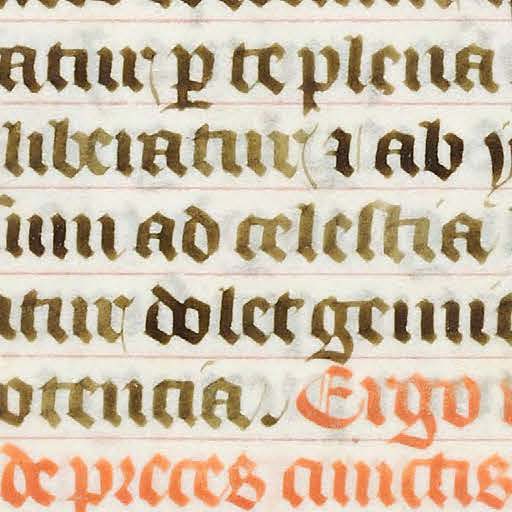 atur ꝑ te plena
liberatur ⁊ ab
ium ad celestia
atur dolet gemit
otencia. Ergo
de preces cunctis